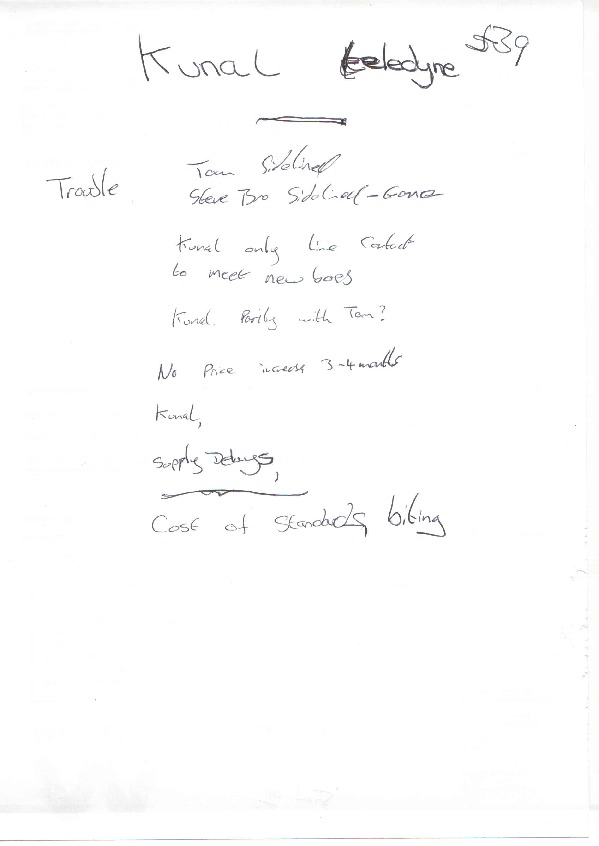 Kunal teledyne £39
Tom Sidelined
Trouble
Steve Bro Sidelined - Gone
Kunal only line Contact
to meet new boss
Kunal. Parity with Tom?
No Price increase 3-4 months
Kunal,
Supply Delays,
Cost of Standards biting